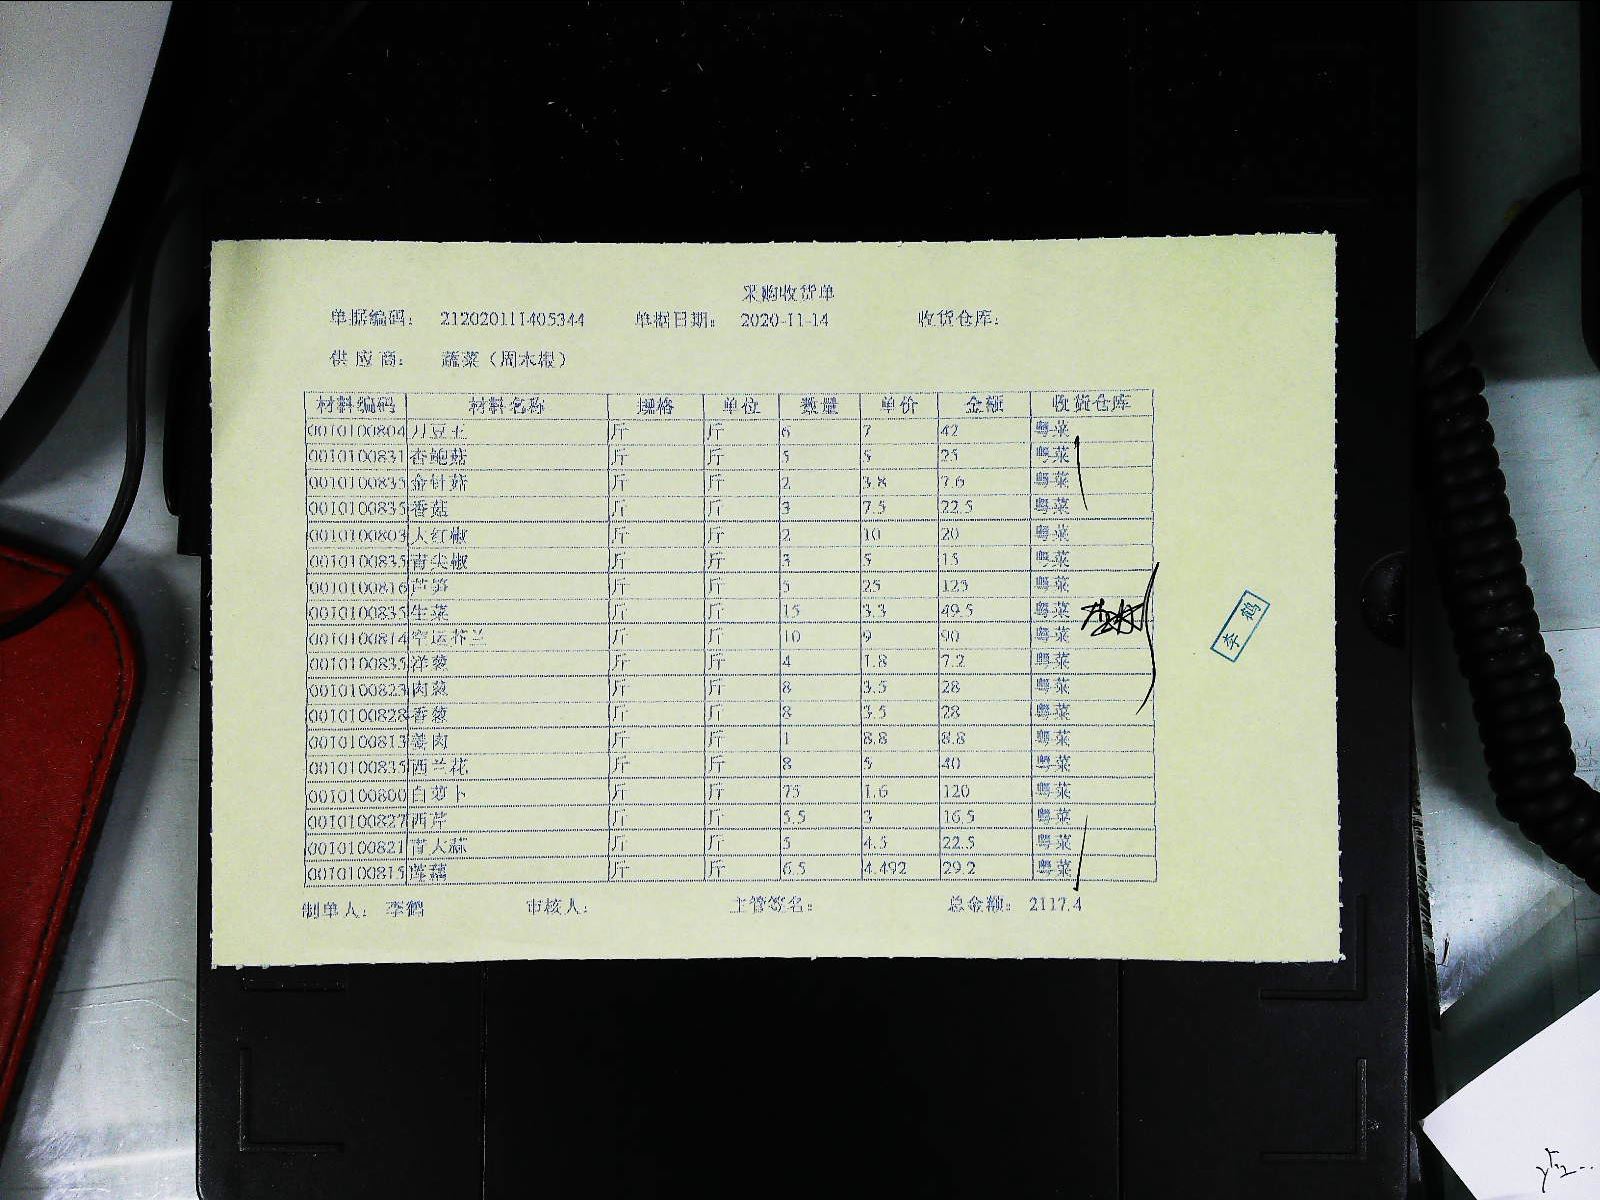 采购收货单
单据编码： 212020111405344 单据日期： 2020-11-14 收货仓库：
供应商： 蔬菜（周木根）
材料编码 材料名称 规格 单位 数量 单价 金额 收货仓库
0010100804 刀豆王 斤 斤 6 7 42 粤菜
0010100831 杏鲍菇 斤 斤 5 5 25 粤菜
0010100835 金针菇 斤 斤 2 3.8 7.6 粤菜
0010100835 香菇 斤 斤 3 7.5 22.5 粤菜
0010100803 大红椒 斤 斤 2 10 20 粤菜
0010100835 青尖椒 斤 斤 3 5 15 粤菜
0010100816 芦笋 斤 斤 5 25 125 粤菜
0010100835 生菜 斤 斤 15 3.3 49.5 粤菜
0010100814 空运芥兰 斤 斤 10 9 90 粤菜
0010100835 洋葱 斤 斤 4 1.8 7.2 粤菜
0010100823 肉葱 斤 斤 8 3.5 28 粤菜
0010100828 香葱 斤 斤 8 3.5 28 粤菜
0010100813 姜肉 斤 斤 1 8.8 8.8 粤菜
0010100835 西兰花 斤 斤 8 5 40 粤菜
0010100800 白萝卜 斤 斤 75 1.6 120 粤菜
0010100827 西芹 斤 斤 5.5 3 16.5 粤菜
0010100821 青大蒜 斤 斤 5 4.5 22.5 粤菜
0010100815 莲藕 斤 斤 6.5 4.492 29.2 粤菜
制单人： 李鹤 审核人： 主管签名： 总金额： 2117.4
李鹤